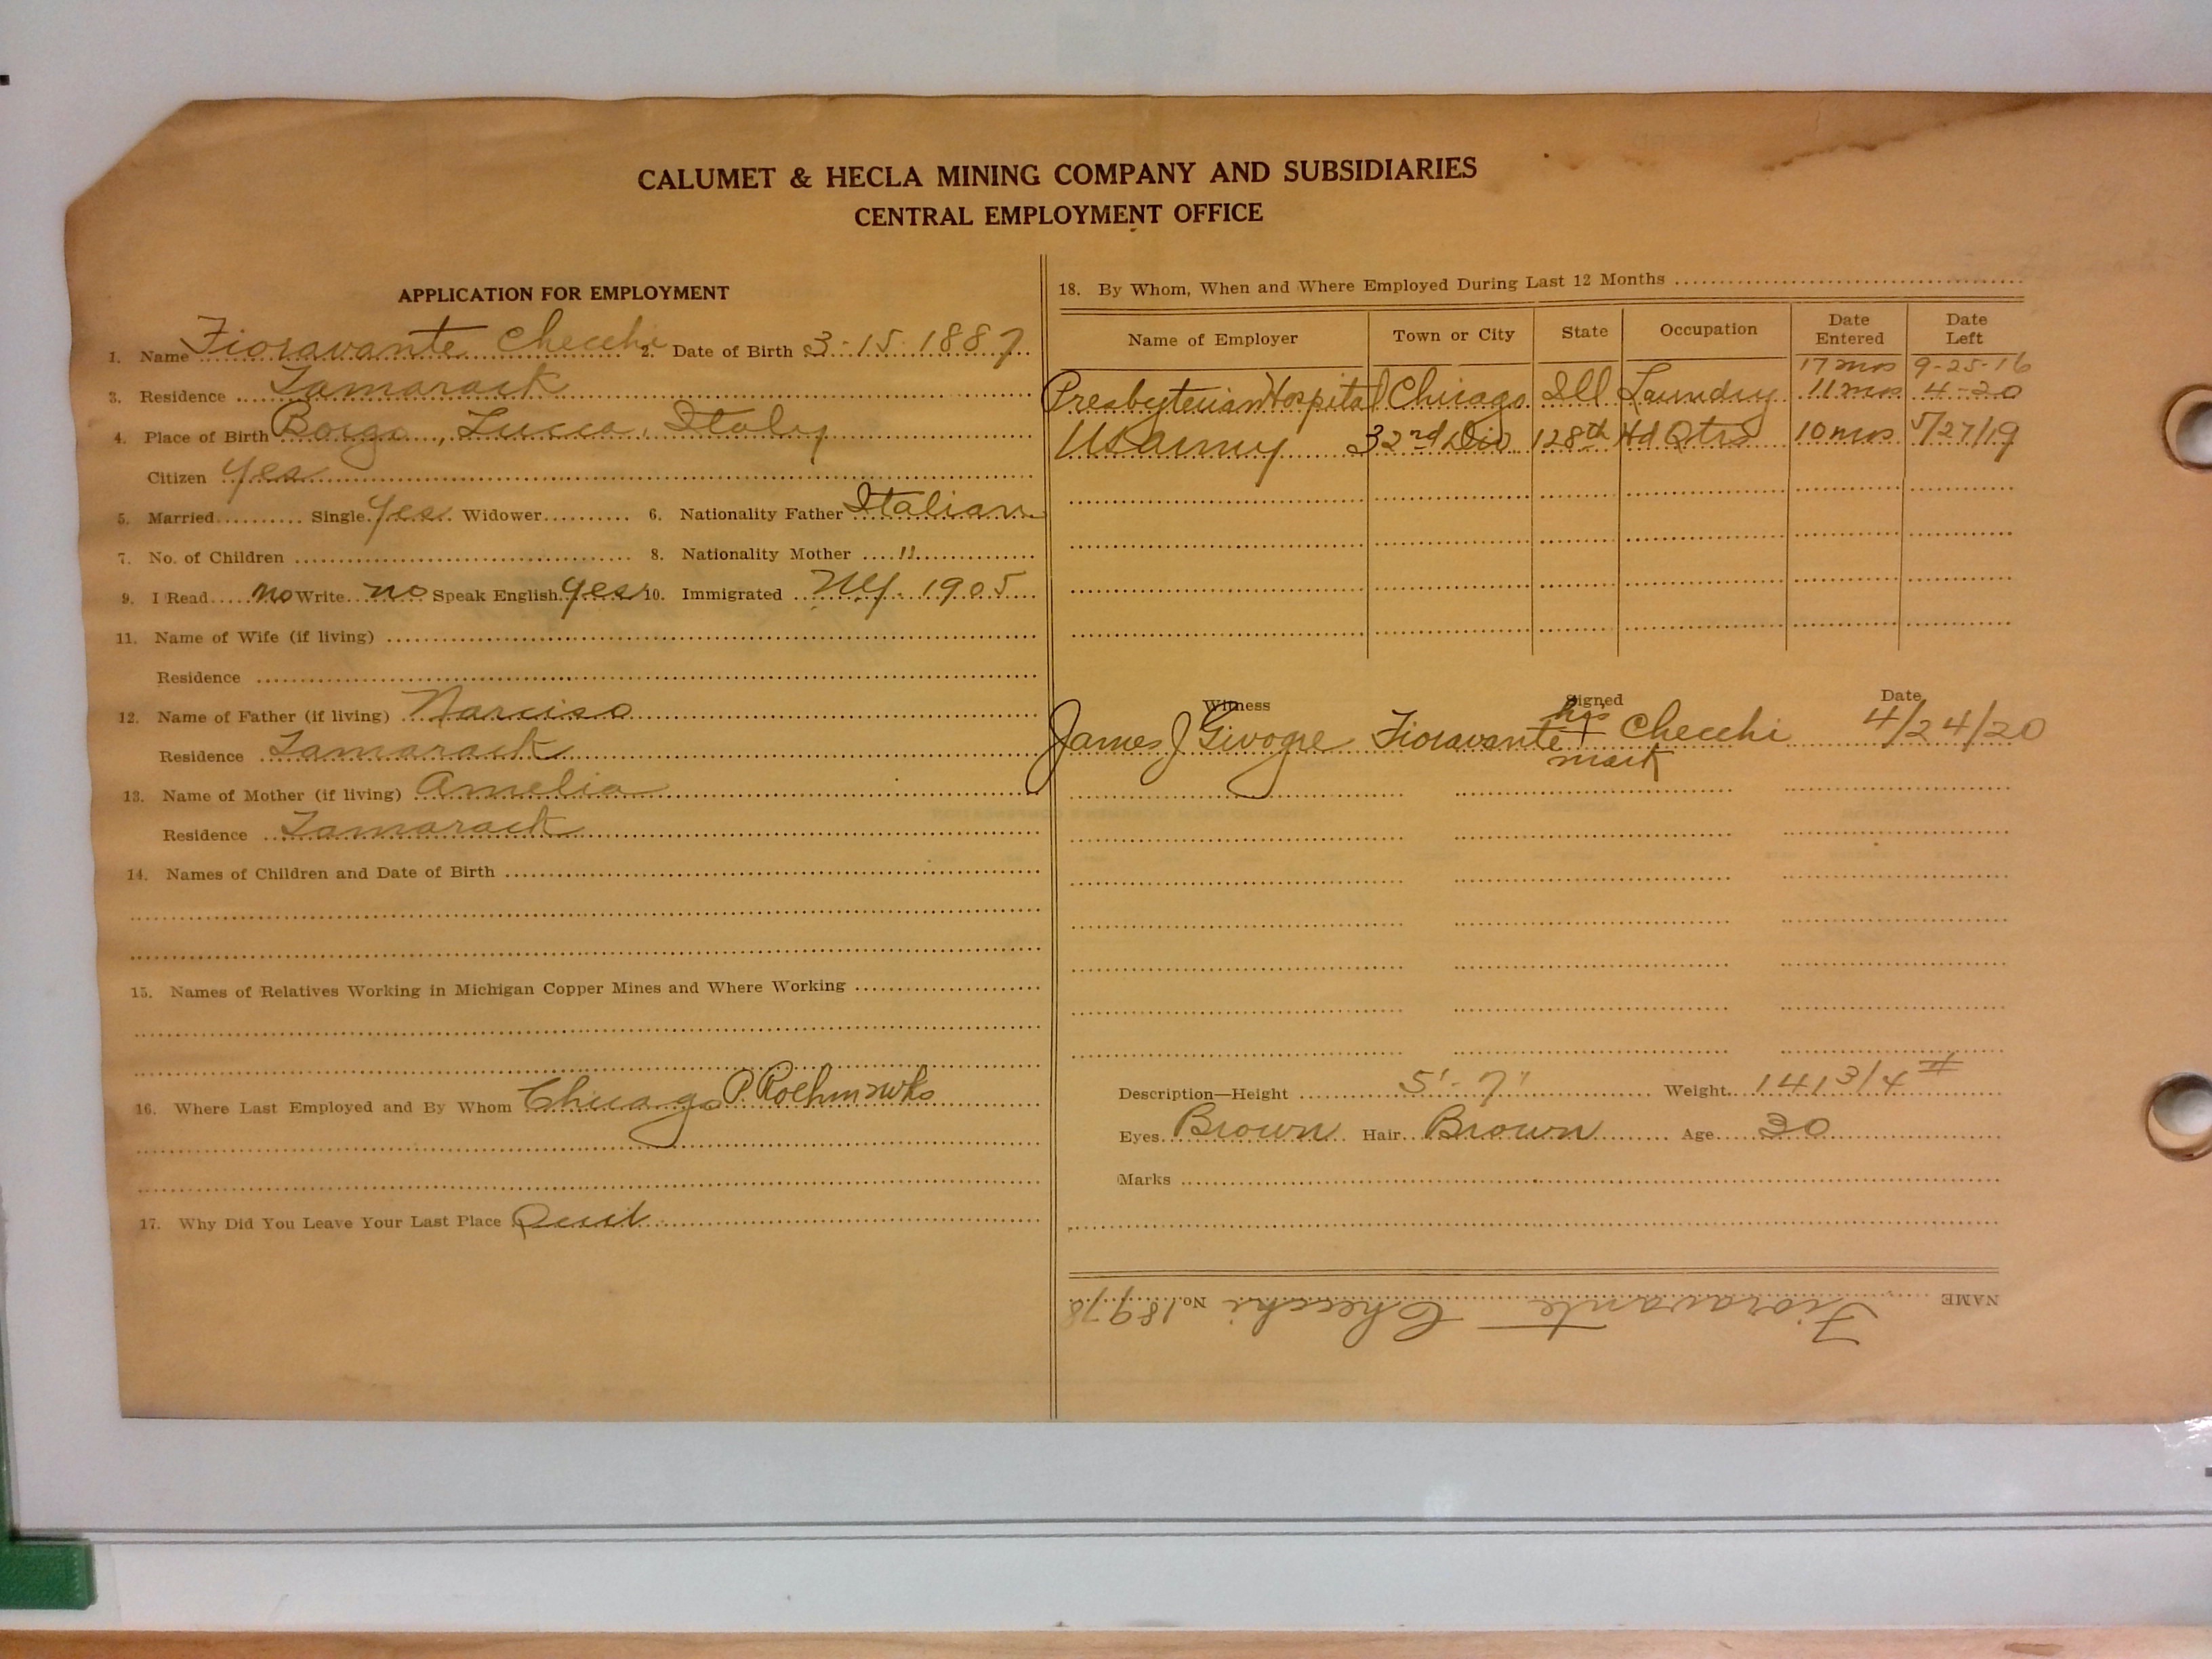 CALUMET & HECLA MINING COMPANY AND SUBSIDIARIES
CENTRAL EMPLOYMENT OFFICE
APPLICATION FOR EMPLOYMENT
1. Name Fioravante Checchi 2. Date of Birth 3-15-1887
3. Residence Tamarack
4. Place of Birth Borgo, Lucca, Italy
Citizen yes
5. Married Single yes Widower 6. Nationality Father Italian
7. No. of Children 8. Nationality Mother "
9. I Read no Write no Speak English yes 10. Immigrated NY. 1905
11. Name of Wife (if living)
Residence
12. Name of Father (if living) Narciso
Residence Tamarack
13. Name of Mother (if living) Amelia
Residence Tamarack
14. Names of Children and Date of Birth
15. Names of Relatives Working in Michigan Copper Mines and Where Working
16. Where Last Employed and By Whom Chicago P.
17. Why Did You Leave Your Last Place Quit
18. By Whom, When and Where Employed During Last 12 Months
Name of Employer Town or City State Occupation Date Entered Date Left
17 mos 9-25-16
Presbyterian Hospital Chicago Ill Laundry 11 mos 4-20
US army 32nd Div 128th Hd Qtrs 10 mos 5/27/19
Witness Signed Date
James J Fioravante his + mark Checchi 4/24/20
Description—Height 5'-7" Weight 141 3/4 #
Eyes Brown Hair Brown Age 30
Marks
NAME Fioravante Checchi No. 18978